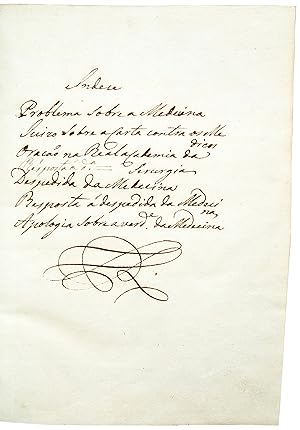 Indece
Problema sobre a Medicina
Juizo sobre a Carta contra os Me
dicos
Oração na Real academia da
Sirurgia
Despedida da Medecina
Resposta á despedida da Medeci
na
Apologia sobre a verd.e da Medecina